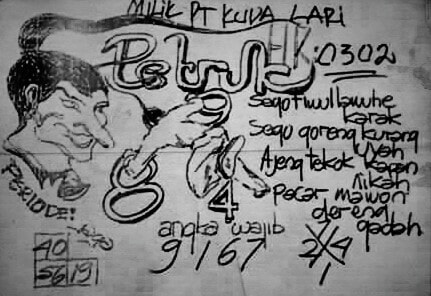 MILIK PT KUDA LARI
Petruk HK: 0302
Sego tiwul lawuhe
karak
Sego goreng kurang
uyah
Ajeng tekok kapan
nikah
Pacar mawon
dereng
gadah
9
8
4
PERIODE:
angka wajib
9167
2 4
1
40
56 19